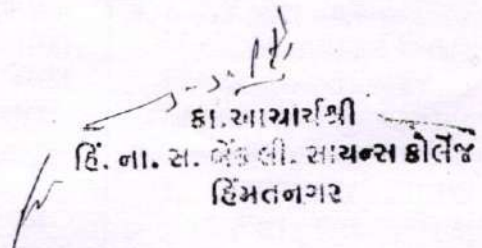 કા.આચાર્યશ્રી
હિં. ના. સ. બેંક લી. સાયન્સ કોલેજ
હિંમતનગર